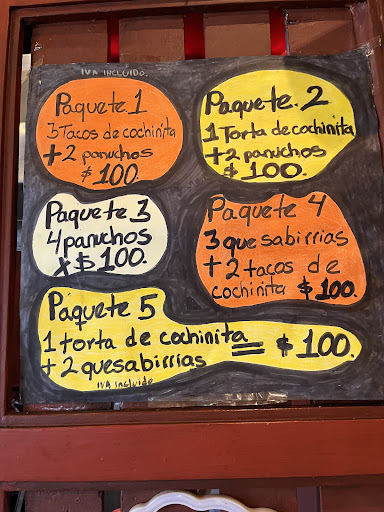 IVA INCLUIDO.
Paquete 1
3 Tacos de cochinita
+ 2 panuchos
$100.
Paquete. 2
1 Torta de cochinita
+ 2 panuchos
$100.
Paquete 3
4 panuchos
x $100.
Paquete 4
3 quesabirrias
+ 2 tacos de
cochinita $100.
Paquete 5
1 torta de cochinita
+ 2 quesabirrias = $100.
IVA incluido